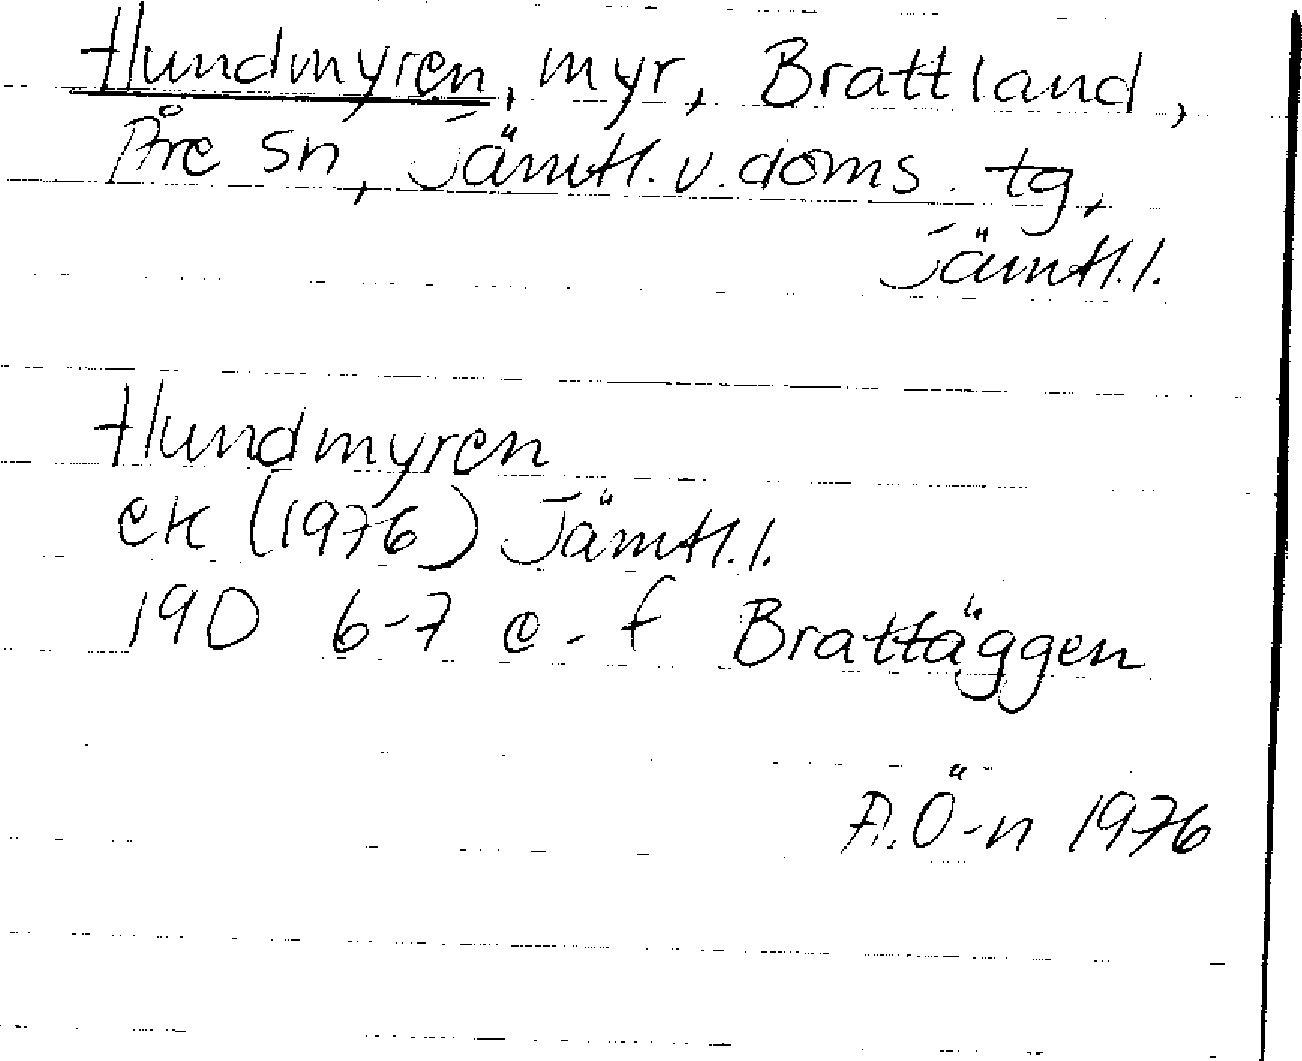 Hundmyren, myr, Brattland,
Åre sn, Jämtl. v. doms. tg,
Jämtl.l.
Hundmyren
ek (1976) Jämtl.l.
19D 6-7 e-f Brattäggen
A.Ö-n 1976